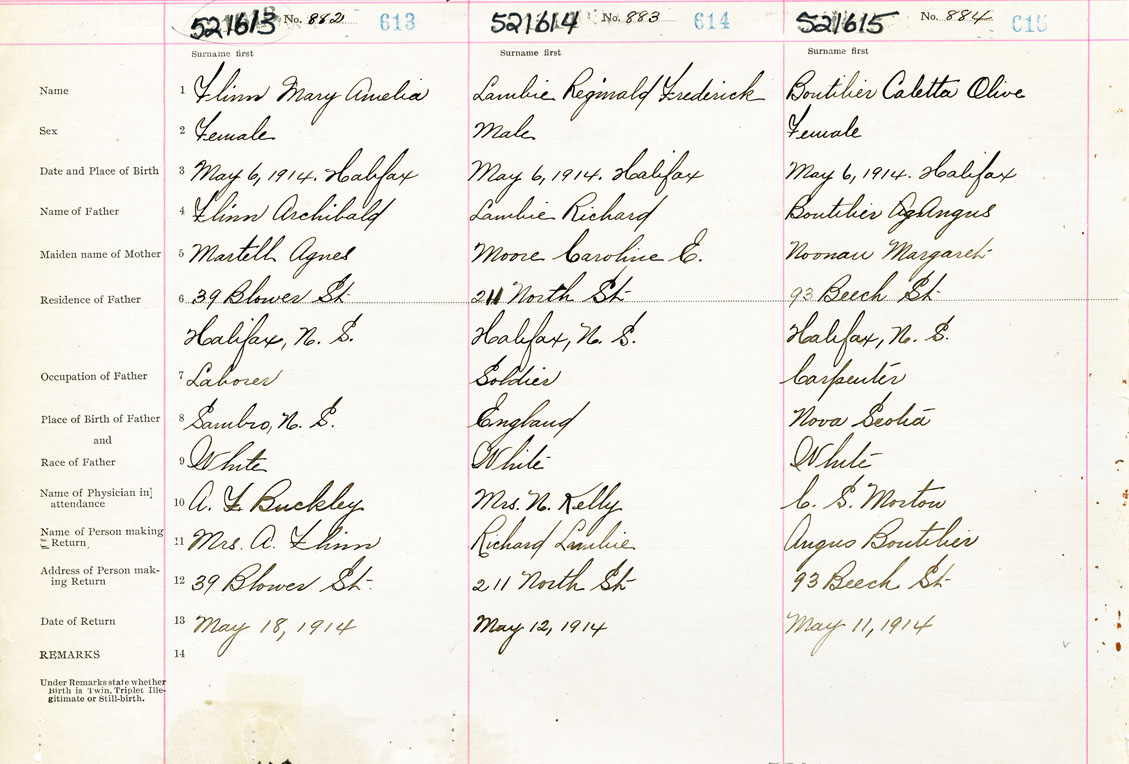 521613 No. 882 613 521614 No. 883 614 521615 No. 884 615
Surname first Surname first Surname first
Name 1 Flinn Mary Amelia Lambie Reginald Frederick Boutilier Caletta Olive
Sex 2 Female Male Female
Date and Place of Birth 3 May 6, 1914. Halifax May 6, 1914. Halifax May 6, 1914. Halifax
Name of Father 4 Flinn Archibald Lambie Richard Boutilier Angus
Maiden name of Mother 5 Martell Agnes Moore Caroline E. Noonan Margaret
Residence of Father 6 39 Blower St. 211 North St. 93 Beech St.
Halifax, N. S. Halifax, N. S. Halifax, N. S.
Occupation of Father 7 Laborer Soldier Carpenter
Place of Birth of Father 8 Sambro, N. S. England Nova Scotia
and
Race of Father 9 White White White
Name of Physician in
attendance 10 A. F. Buckley Mrs. N. Kelly C. S. Morton
Name of Person making
Return 11 Mrs. A. Flinn Richard Lambie Angus Boutilier
Address of Person mak-
ing Return 12 39 Blower St. 211 North St. 93 Beech St.
Date of Return 13 May 18, 1914 May 12, 1914 May 11, 1914
REMARKS 14
Under Remarks state whether
Birth is Twin, Triplet Ille-
gitimate or Still-birth.